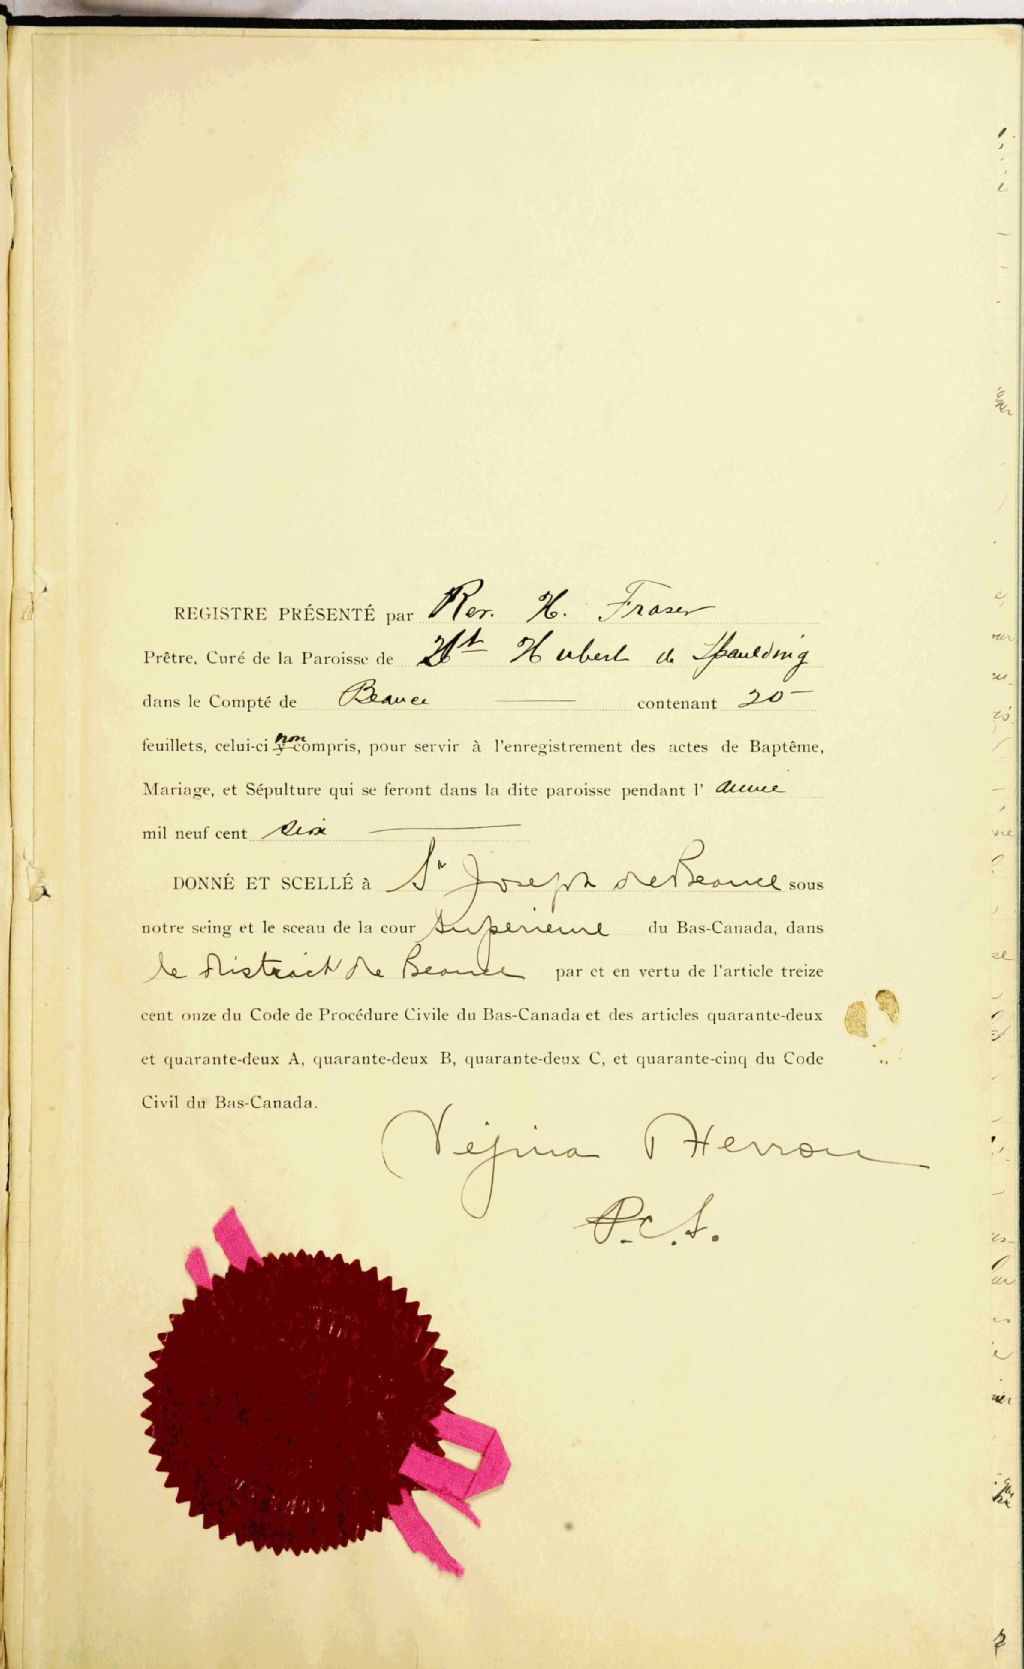 REGISTRE PRÉSENTÉ par Rev. H. Fraser
Prêtre, Curé de la Paroisse de St Hubert de Spaulding
dans le Compté de Beauce contenant 20
feuillets, celui-ci non compris, pour servir à l'enregistrement des actes de Baptême,
Mariage, et Sépulture qui se feront dans la dite paroisse pendant l' année
mil neuf cent six
DONNÉ ET SCELLÉ à St Joseph de Beauce sous
notre seing et le sceau de la cour Supérieure du Bas-Canada, dans
le district de Beauce par et en vertu de l'article treize
cent onze du Code de Procédure Civile du Bas-Canada et des articles quarante-deux
et quarante-deux A, quarante-deux B, quarante-deux C, et quarante-cinq du Code
Civil du Bas-Canada.
P.C.S.